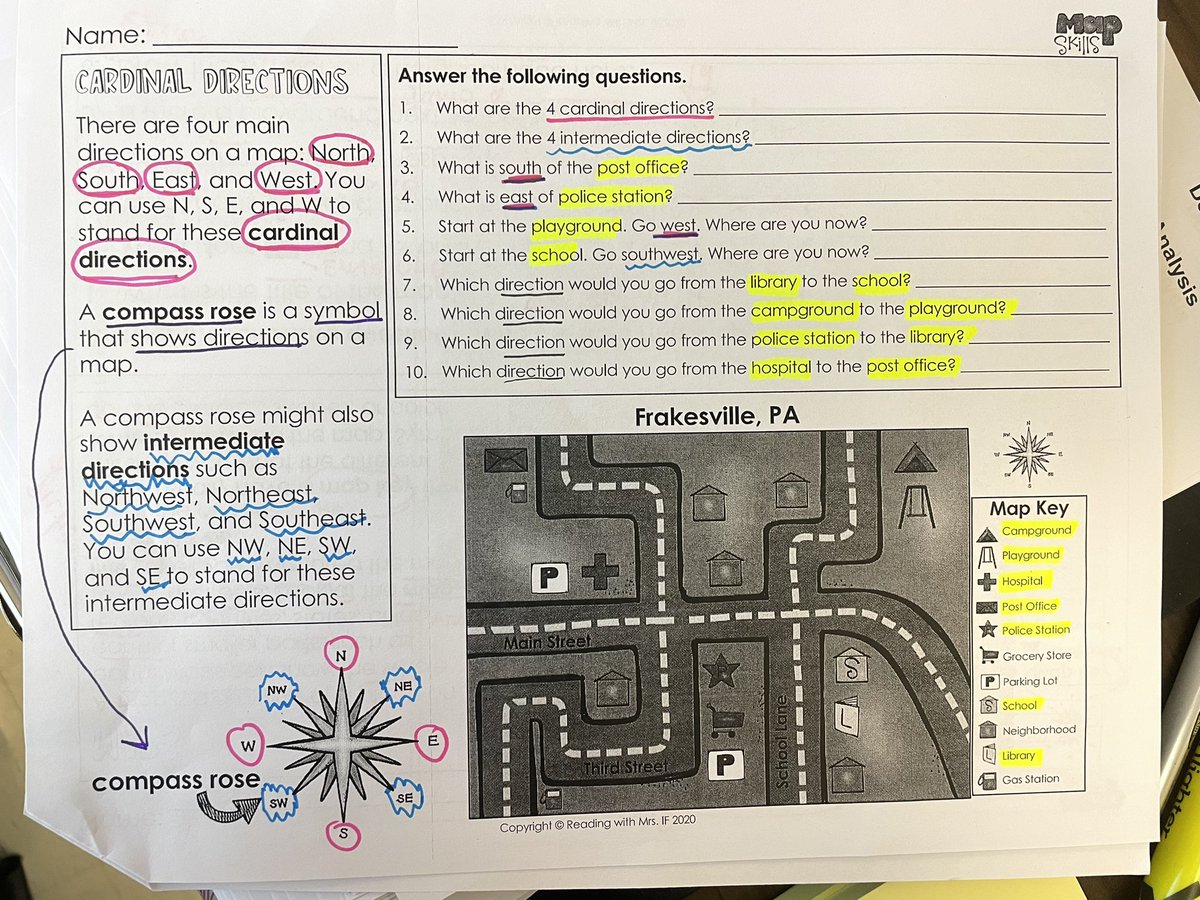 Name:
Map
Skills
CARDINAL DIRECTIONS
There are four main
directions on a map: North,
South, East, and West. You
can use N, S, E, and W to
stand for these cardinal
directions.
A compass rose is a symbol
that shows directions on a
map.
A compass rose might also
show intermediate
directions such as
Northwest, Northeast,
Southwest, and Southeast.
You can use NW, NE, SW,
and SE to stand for these
intermediate directions.
N
NW
NE
W
E
compass rose
SW
SE
S
Answer the following questions.
1. What are the 4 cardinal directions?
2. What are the 4 intermediate directions?
3. What is south of the post office?
4. What is east of police station?
5. Start at the playground. Go west. Where are you now?
6. Start at the school. Go southwest. Where are you now?
7. Which direction would you go from the library to the school?
8. Which direction would you go from the campground to the playground?
9. Which direction would you go from the police station to the library?
10. Which direction would you go from the hospital to the post office?
Frakesville, PA
P
Main Street
S
L
School Lane
Third Street
P
Copyright © Reading with Mrs. IF 2020
N
NW
NE
W
E
SW
SE
S
Map Key
Campground
Playground
Hospital
Post Office
Police Station
Grocery Store
P Parking Lot
S School
Neighborhood
L Library
Gas Station
Analysis